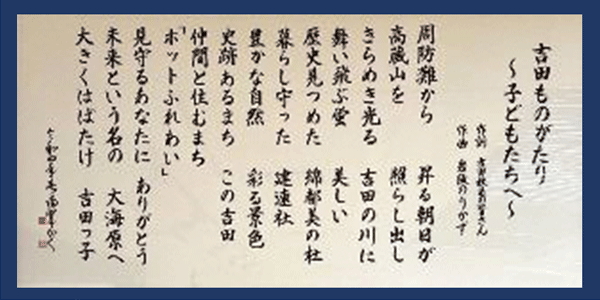 吉田ものがたり
〜子どもたちへ〜
作詞 吉田
作曲 のりかず
周防灘から 昇る朝日が
高蔵山を 照らし出し
きらめき光る 吉田の川に
舞い飛ぶ蛍 美しい
歴史見つめた 綿都美の杜
暮らし守った 建速社
豊かな自然 彩る景色
史跡あるまち この吉田
仲間と住むまち
「ホットふれあい」
見守るあなたに ありがとう
未来という名の 大海原へ
大きくはばたけ 吉田っ子